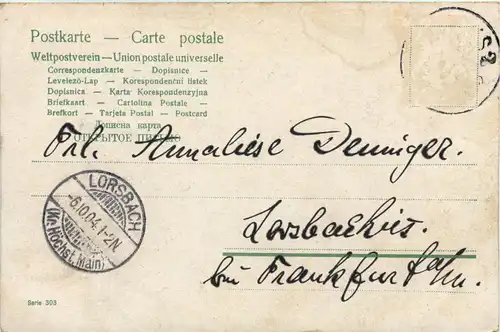 Postkarte — Carte postale
Weltpostverein — Union postale universelle
Correspondenzkarte — Dopisnice —
Levelező-Lap — Korespondenční listek
Dopisnica — Karta Korespondenzyjna
Briefkaart — Cartolina Postale —
Brefkort — Tarjeta Postal — Postcard
Дописна карта
ОТКРЫТОЕ ПИСЬМО
Frl. Annaliese Denninger.
LORSBACH
-6.10.04. 1-2N
(Kr. Höchst, Main)
bei Frankfurt a/m.
Serie 303